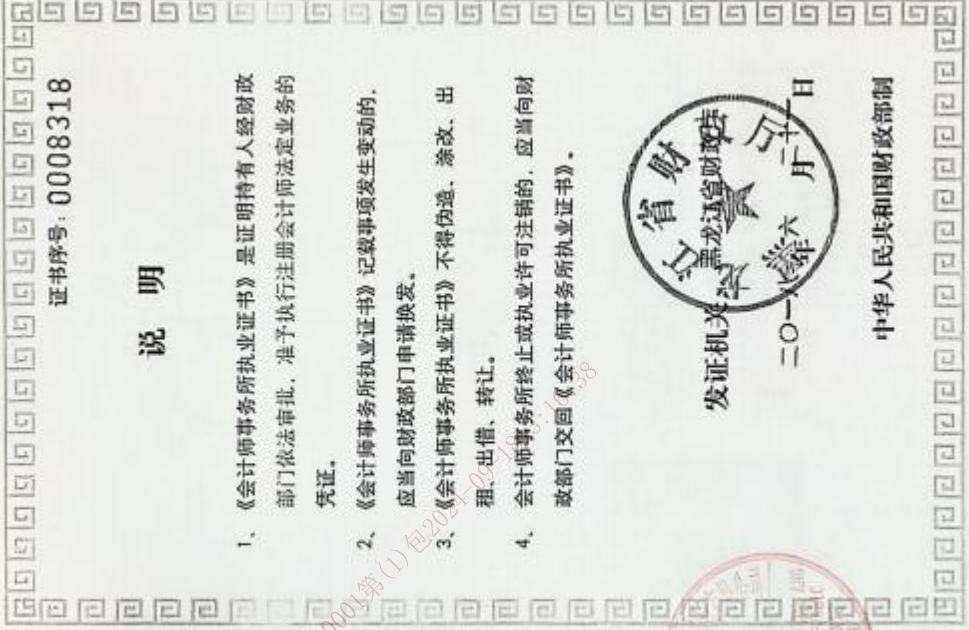 证书序号：0008318
说 明
1、《会计师事务所执业证书》是证明持有人经财政
部门依法审批，准予执行注册会计师法定业务的
凭证。
2、《会计师事务所执业证书》记载事项发生变动的，
应当向财政部门申请换发。
3、《会计师事务所执业证书》不得伪造、涂改、出
租、出借、转让。
4、会计师事务所终止或执业许可注销的，应当向财
政部门交回《会计师事务所执业证书》。
发证机关
黑龙江省财政厅
江省财
厅
二〇一八年六月二十一日
中华人民共和国财政部制
0001第(1)包2021-09